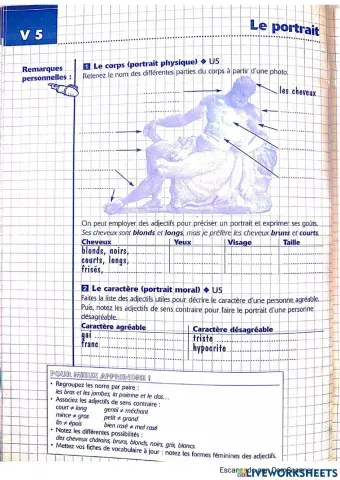 V 5
Le portrait
Remarques
personnelles :
1 Le corps (portrait physique) ◆ U5
Retenez le nom des différentes parties du corps à partir d'une photo.
les cheveux
On peut employer des adjectifs pour préciser un portrait et exprimer ses goûts.
Ses cheveux sont blonds et longs, mais je préfère les cheveux bruns et courts.
Cheveux Yeux Visage Taille
blonds, noirs,
courts, longs,
frisés,
2 Le caractère (portrait moral) ◆ U5
Faites la liste des adjectifs utiles pour décrire le caractère d'une personne agréable.
Puis, notez les adjectifs de sens contraire pour faire le portrait d'une personne
désagréable.
Caractère agréable Caractère désagréable
gai triste
franc hypocrite
POUR MIEUX APPRENDRE !
• Regroupez les noms par paire :
les bras et les jambes, la poitrine et le dos...
• Associez les adjectifs de sens contraire :
court ≠ long génial ≠ méchant
mince ≠ gros petit ≠ grand
fin ≠ épais bien rasé ≠ mal rasé
• Notez les différentes possibilités :
des cheveux châtains, bruns, blonds, noirs, gris, blancs.
• Mettez vos fiches de vocabulaire à jour : notez les formes féminines des adjectifs.
LIVEWORKSHEETS